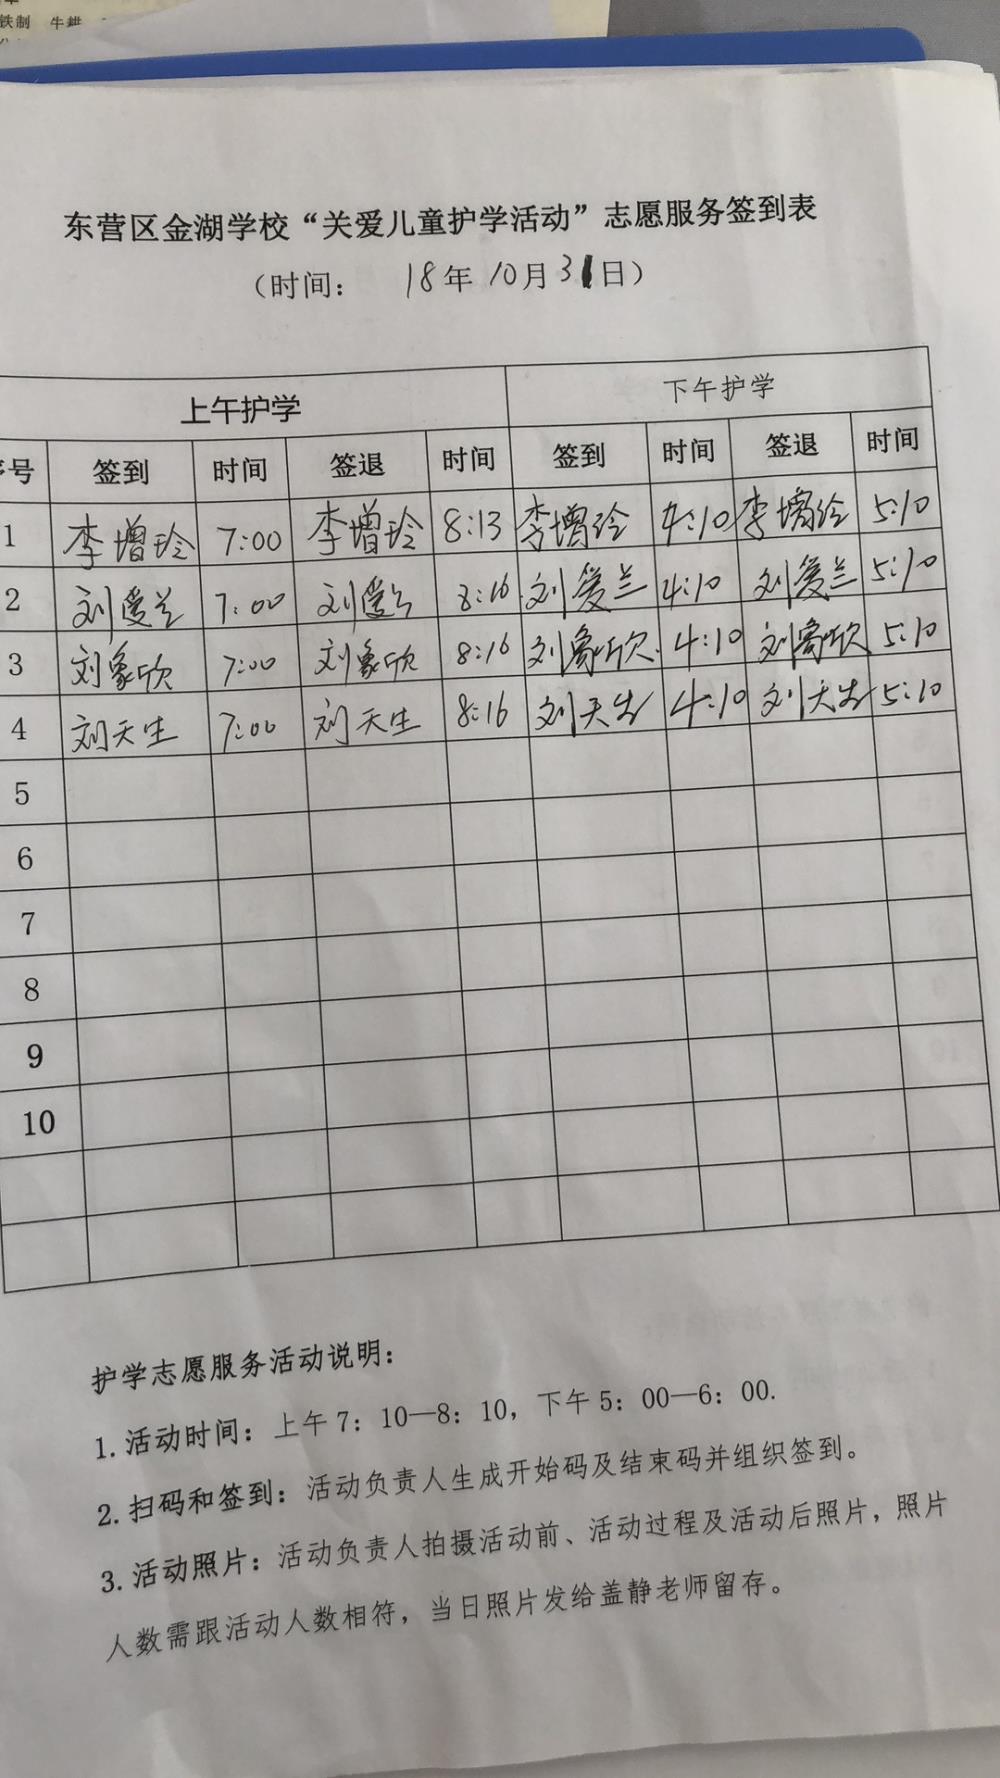 铁制 牛耕
东营区金湖学校“关爱儿童护学活动”志愿服务签到表
（时间： 18年10月31日）
上午护学 下午护学
序号 签到 时间 签退 时间 签到 时间 签退 时间
1 李增玲 7:00 李增玲 8:13 李增玲 4:10 李增玲 5:10
2 刘爱兰 7:00 刘爱兰 8:16 刘爱兰 4:10 刘爱兰 5:10
3 刘象欣 7:00 刘象欣 8:16 刘象欣 4:10 刘象欣 5:10
4 刘天生 7:00 刘天生 8:16 刘天生 4:10 刘天生 5:10
5
6
7
8
9
10
护学志愿服务活动说明：
1.活动时间：上午7：10—8：10，下午5：00—6：00.
2.扫码和签到：活动负责人生成开始码及结束码并组织签到。
3.活动照片：活动负责人拍摄活动前、活动过程及活动后照片，照片
人数需跟活动人数相符，当日照片发给盖静老师留存。